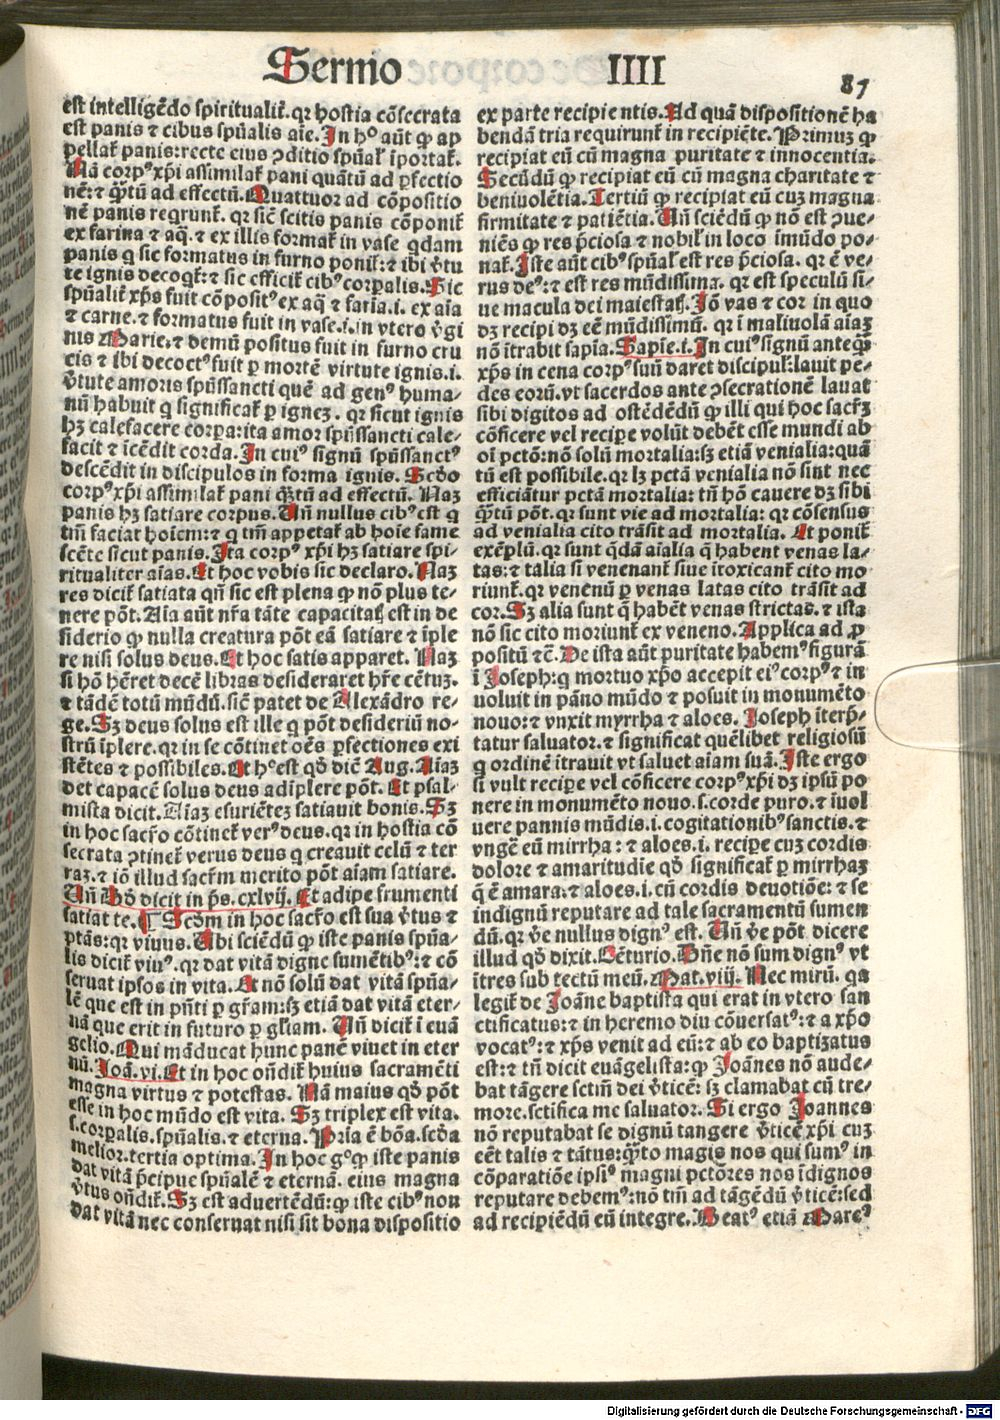 Sermo IIII
87
est intelligēdo spiritualit̄. qꝛ hostia cōsecrata
est panis ⁊ cibus spūalis aīe. In hᵒ aūt ꝙ ap
pellat̄ panis: recte eius ꝯditio spūal̄ īportat̄.
Nā corpꝰ xp̄i assimilat̄ pani quātū ad ꝑfectio
nē: ⁊ q̄ꝫtū ad effectū. Quattuor ad cōpositio
nē panis reqrunt̄. qꝛ sicē scitis panis cōponit̄
ex farina ⁊ aq̄. ⁊ ex illis format̄ in vase qdam
panis q sic formatus in furno ponit̄: ⁊ ibi v̄tu
te ignis decoqt̄: ⁊ sic efficit̄ cibꝰ corꝑalis. Sic
spūalit̄ xp̄s fuit cōpositꝰ ex aq̄ ⁊ faria. i. ex aīa
⁊ carne. ⁊ formatus fuit in vase. i. in vtero v̄gi
nis Marie. ⁊ demū positus fuit in furno cru
cis ⁊ ibi decoctꝰ fuit ꝑ mortē virtute ignis. i.
v̄tute amoris spūssancti quē ad genꝰ huma-
nū habuit q significat̄ ꝑ ignez. qꝛ sicut ignis
hꝫ calefacere corꝑa: ita amor spūssancti cale-
facit ⁊ īcēdit corda. In cuiꝰ signū spūssanctꝰ
descēdit in discipulos in forma ignis. Scd̄o
corpꝰ xp̄i assimilat̄ pani q̄ꝫtū ad effectū. Naꝫ
panis hꝫ satiare corpus. Uñ nullus cibꝰ est q
tm̄ faciat hoīem: ⁊ q tm̄ appetat̄ ab hoīe fame
scēte sicut panis. Ita corpꝰ xp̄i hꝫ satiare spi-
ritualiter aīas. Et hoc vobis sic declaro. Naꝫ
res dicit̄ satiata qn̄ sic est plena ꝙ nō plus te-
nere pōt. Aīa aūt nr̄a tāte capacitat̄ est in de
siderio ꝙ nulla creatura pōt eā satiare ⁊ īple
re nisi solus deus. Et hoc satis apparet. Naꝫ
si hō hēret decē libras desideraret hr̄e cētuꝫ.
⁊ tādē totū mūdū. sicē patet de Alexādro re-
ge. Sꝫ deus solus est ille q pōt desideriū no-
strū īplere. qꝛ in se cōtinet oēs ꝑfectiones exi
stētes ⁊ possibiles. Et hᵒ est qd̄ dicē Aug. Aīaꝫ
dei capacē solus deus adiplere pōt. Et psal-
mista dicit. Aīaꝫ esuriētez satiauit bonis. Sꝫ
in hoc sacr̄o cōtinet̄ verꝰ deus. qꝛ in hostia cō
secrata ꝯtinet̄ verus deus q creauit celū ⁊ ter
raꝫ. ⁊ iō illud sacr̄m merito pōt aīam satiare.
Uñ dd̄ dicit in p̄s. cxlvij. Et adipe frumenti
satiat te. ¶ Scd̄m in hoc sacr̄o est sua v̄tus ⁊
ptās: qꝛ viuus. Ubi sciēdū ꝙ iste panis spūa-
lis dicit̄ viuꝰ. qꝛ dat vitā digne sumētibꝰ: ⁊ cō
seruat ipsos in vita. Et nō solū dat vitā spūa-
lē que est in pn̄ti ꝑ gr̄am: sꝫ etiā dat vitā eter-
nā que erit in futuro ꝑ gl̄iam. Uñ dicit̄ i euā
gelio. Qui māducat hunc panē viuet in eter
nū. Joā. vi. Et in hoc on̄dit̄ huius sacramēti
magna virtus ⁊ potestas. Nā maius qd̄ pōt
esse in hoc mūdo est vita. Sꝫ triplex est vita.
s. corꝑalis. spūalis. ⁊ eterna. Prīa ē bōa. scd̄a
melior. tertia optima. In hoc gᵒ ꝙ iste panis
dat vitā p̄cipue spūalē ⁊ eternā. eius magna
v̄tus on̄dit̄. Sꝫ est aduertēdū: ꝙ iste cibꝰ non
dat vitā nec conseruat nisi sit bona dispositio
ex parte recipientis. Ad quā dispositionē ha
bendā tria requirunt̄ in recipiēte. Primuꝫ ꝙ
recipiat eū cū magna puritate ⁊ innocentia.
Secūdū ꝙ recipiat eū cū magna charitate ⁊
beniuolētia. Tertiū ꝙ recipiat eū cuꝫ magna
firmitate ⁊ patiētia. Uñ sciēdū ꝙ nō est ꝯue-
niēs ꝙ res p̄ciosa ⁊ nobil̄ in loco īmūdo po-
nat̄. Iste aūt cibꝰ spūal̄ est res p̄ciosa. qꝛ ē ve-
rus deꝰ: ⁊ est res mūdissima. qꝛ est speculū si-
ne macula dei maiestat̄. Jō vas ⁊ cor in quo
dꝫ recipi dꝫ eē mūdissimū. qꝛ ī maliuolā aīaꝫ
nō ītrabit sapīa. Sapie. i. In cuiꝰ signū anteq̄ꝫ
xp̄s in cena corpꝰ suū daret discipul̄: lauit pe-
des eorū. vt sacerdos ante ꝯsecrationē lauat
sibi digitos ad ostēdēdū ꝙ illi qui hoc sacr̄ꝫ
cōficere vel recipe volūt debēt esse mundi ab
oī pctō: nō solū mortalia: sꝫ etiā venialia: quā
tū est possibile. qꝛ lꝫ pctā venialia nō sint nec
efficiātur pctā mortalia: tn̄ hō cauere dꝫ sibi
q̄ꝫtū pōt. qꝛ sunt vie ad mortalia: qꝛ cōsensus
ad venialia cito trāsit ad mortalia. Et ponit̄
exēplū. qꝛ sunt qdā aīalia q̄ habent venas la-
tas: ⁊ talia si venenant̄ siue itoxicant̄ cito mo
riunt̄. qꝛ venenū ꝑ venas latas cito trāsit ad
cor. Sꝫ alia sunt q̄ habēt venas strictas. ⁊ ista
nō sic cito moriunt̄ ex veneno. Applica ad ꝓ
positū ⁊c̄. De ista aūt puritate habemꝰ figurā
ī Joseph: q mortuo xp̄o accepit eiꝰ corpꝰ ⁊ in
uoluit in pāno mūdo ⁊ posuit in monumēto
nouo: ⁊ vnxit myrrha ⁊ aloes. Joseph iterp̄-
tatur saluator. ⁊ significat quēlibet religiosū
q ordinē itrauit vt saluet aīam suā. Iste ergo
si vult recipe vel cōficere corpꝰ xp̄i dꝫ ipsū po
nere in monumēto nouo. s. corde puro. ⁊ iuol
uere pannis mūdis. i. cogitationibꝰ sanctis. ⁊
vngē eū mirrha: ⁊ aloes. i. recipe cuꝫ cordis
dolore ⁊ amaritudīe qd̄ significat̄ ꝑ mirrhaꝫ
q̄ ē amara. ⁊ aloes. i. cū cordis deuotiōe: ⁊ se
indignū reputare ad tale sacramentū sumen
dū. qꝛ v̄e nullus dignꝰ est. Uñ v̄e pōt dicere
illud qd̄ dixit. Cēturio. Dn̄e nō sum dignꝰ vt
ītres sub tectū meū. Mat. viij. Nec mirū. qa
legit̄ de Joāne baptista qui erat in vtero san
ctificatus: ⁊ in heremo diu cōuersatꝰ: ⁊ a xp̄o
vocatꝰ: ⁊ xp̄s venit ad eū: ⁊ ab eo baptizatus
est: ⁊ tn̄ dicit euāgelista: ꝙ Joānes nō aude-
bat tāgere sctm̄ dei v̄ticē: sꝫ clamabat cū tre-
more. sctifica me saluator. Si ergo Joannes
nō reputabat se dignū tangere v̄ticē xp̄i cuꝫ
eēt talis ⁊ tātus: q̄ꝫto magis nos qui sumꝰ in
cōparatiōe ipsiꝰ magni pctōres nos īdignos
reputare debemꝰ: nō tm̄ ad tāgēdū v̄ticē: sed
ad recipiēdū eū integre. Beatꝰ etiā Marcꝰ
Digitalisierung gefördert durch die Deutsche Forschungsgemeinschaft - DFG